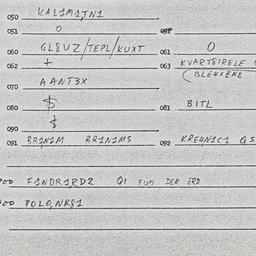 050 KAL1M1TN1
051 0 052
060 GL8UZ/TEPL/KUXT 061 0
062 + 063 KVARTSIRELE
(BLEUXENE
070 AANT3X
080 $ 081 BITL
090 $
091 BR1N1M BR1N1MS 092 KREUN1C1 GS
F1NDR1RD2 Q1 FUM DER ERD
POLO,NKS1